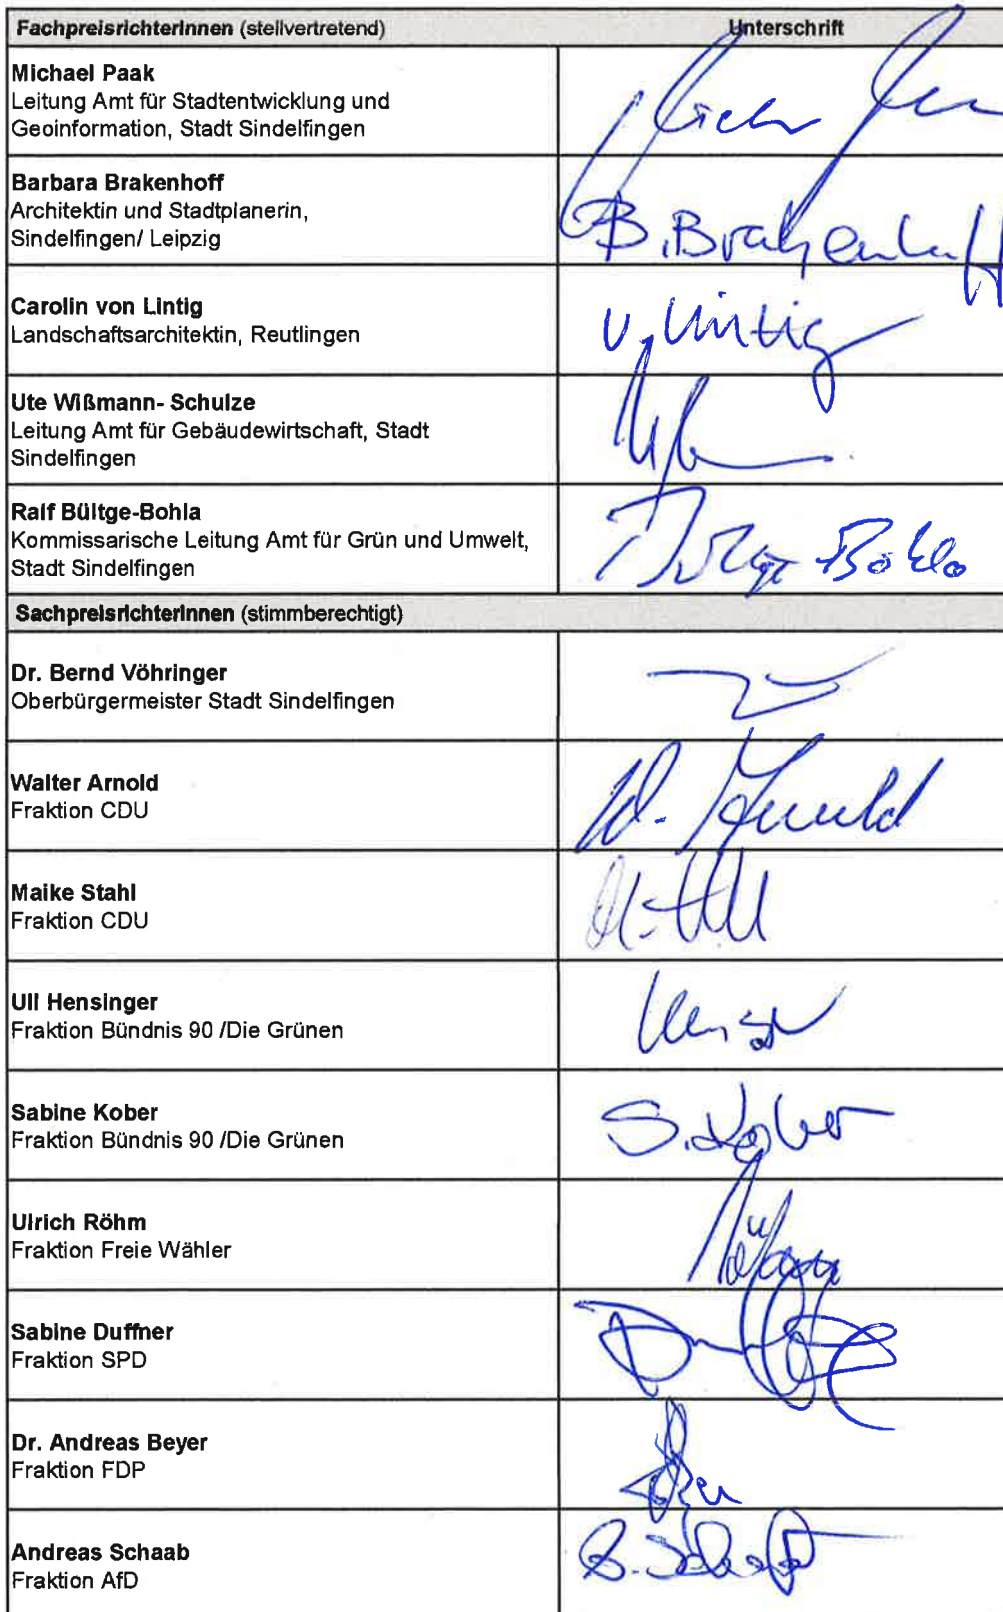 FachpreisrichterInnen (stellvertretend) Unterschrift
Michael Paak
Leitung Amt für Stadtentwicklung und
Geoinformation, Stadt Sindelfingen
Barbara Brakenhoff
Architektin und Stadtplanerin,
Sindelfingen/ Leipzig
B. Brakenhoff
Carolin von Lintig
Landschaftsarchitektin, Reutlingen
v. Lintig
Ute Wißmann- Schulze
Leitung Amt für Gebäudewirtschaft, Stadt
Sindelfingen
Ralf Bültge-Bohla
Kommissarische Leitung Amt für Grün und Umwelt,
Stadt Sindelfingen
SachpreisrichterInnen (stimmberechtigt)
Dr. Bernd Vöhringer
Oberbürgermeister Stadt Sindelfingen
Walter Arnold
Fraktion CDU
W. Arnold
Maike Stahl
Fraktion CDU
Ulli Hensinger
Fraktion Bündnis 90 /Die Grünen
Sabine Kober
Fraktion Bündnis 90 /Die Grünen
S. Kober
Ulrich Röhm
Fraktion Freie Wähler
Sabine Duffner
Fraktion SPD
Dr. Andreas Beyer
Fraktion FDP
Andreas Schaab
Fraktion AfD